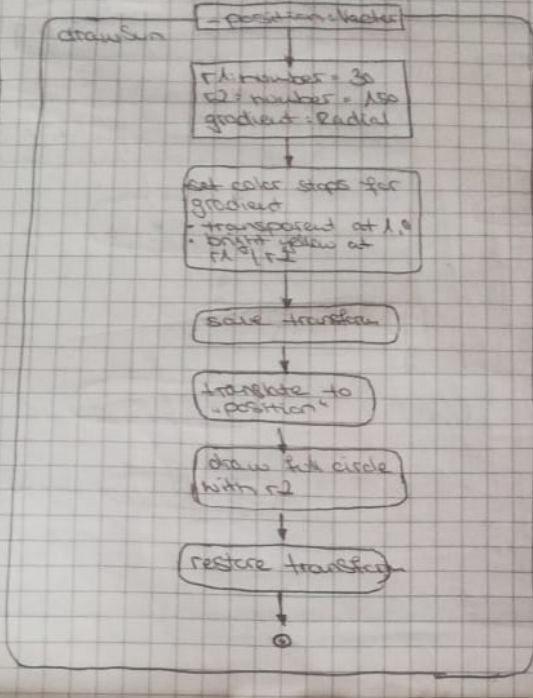 _position:Vector
drawSun
r1: number = 30
r2: number = 150
gradient: Radial
set color stops for
gradient
- transparent at 1.0
- bright yellow at
r1 \ r2
save transform
translate to
„position"
draw full circle
with r2
restore transform